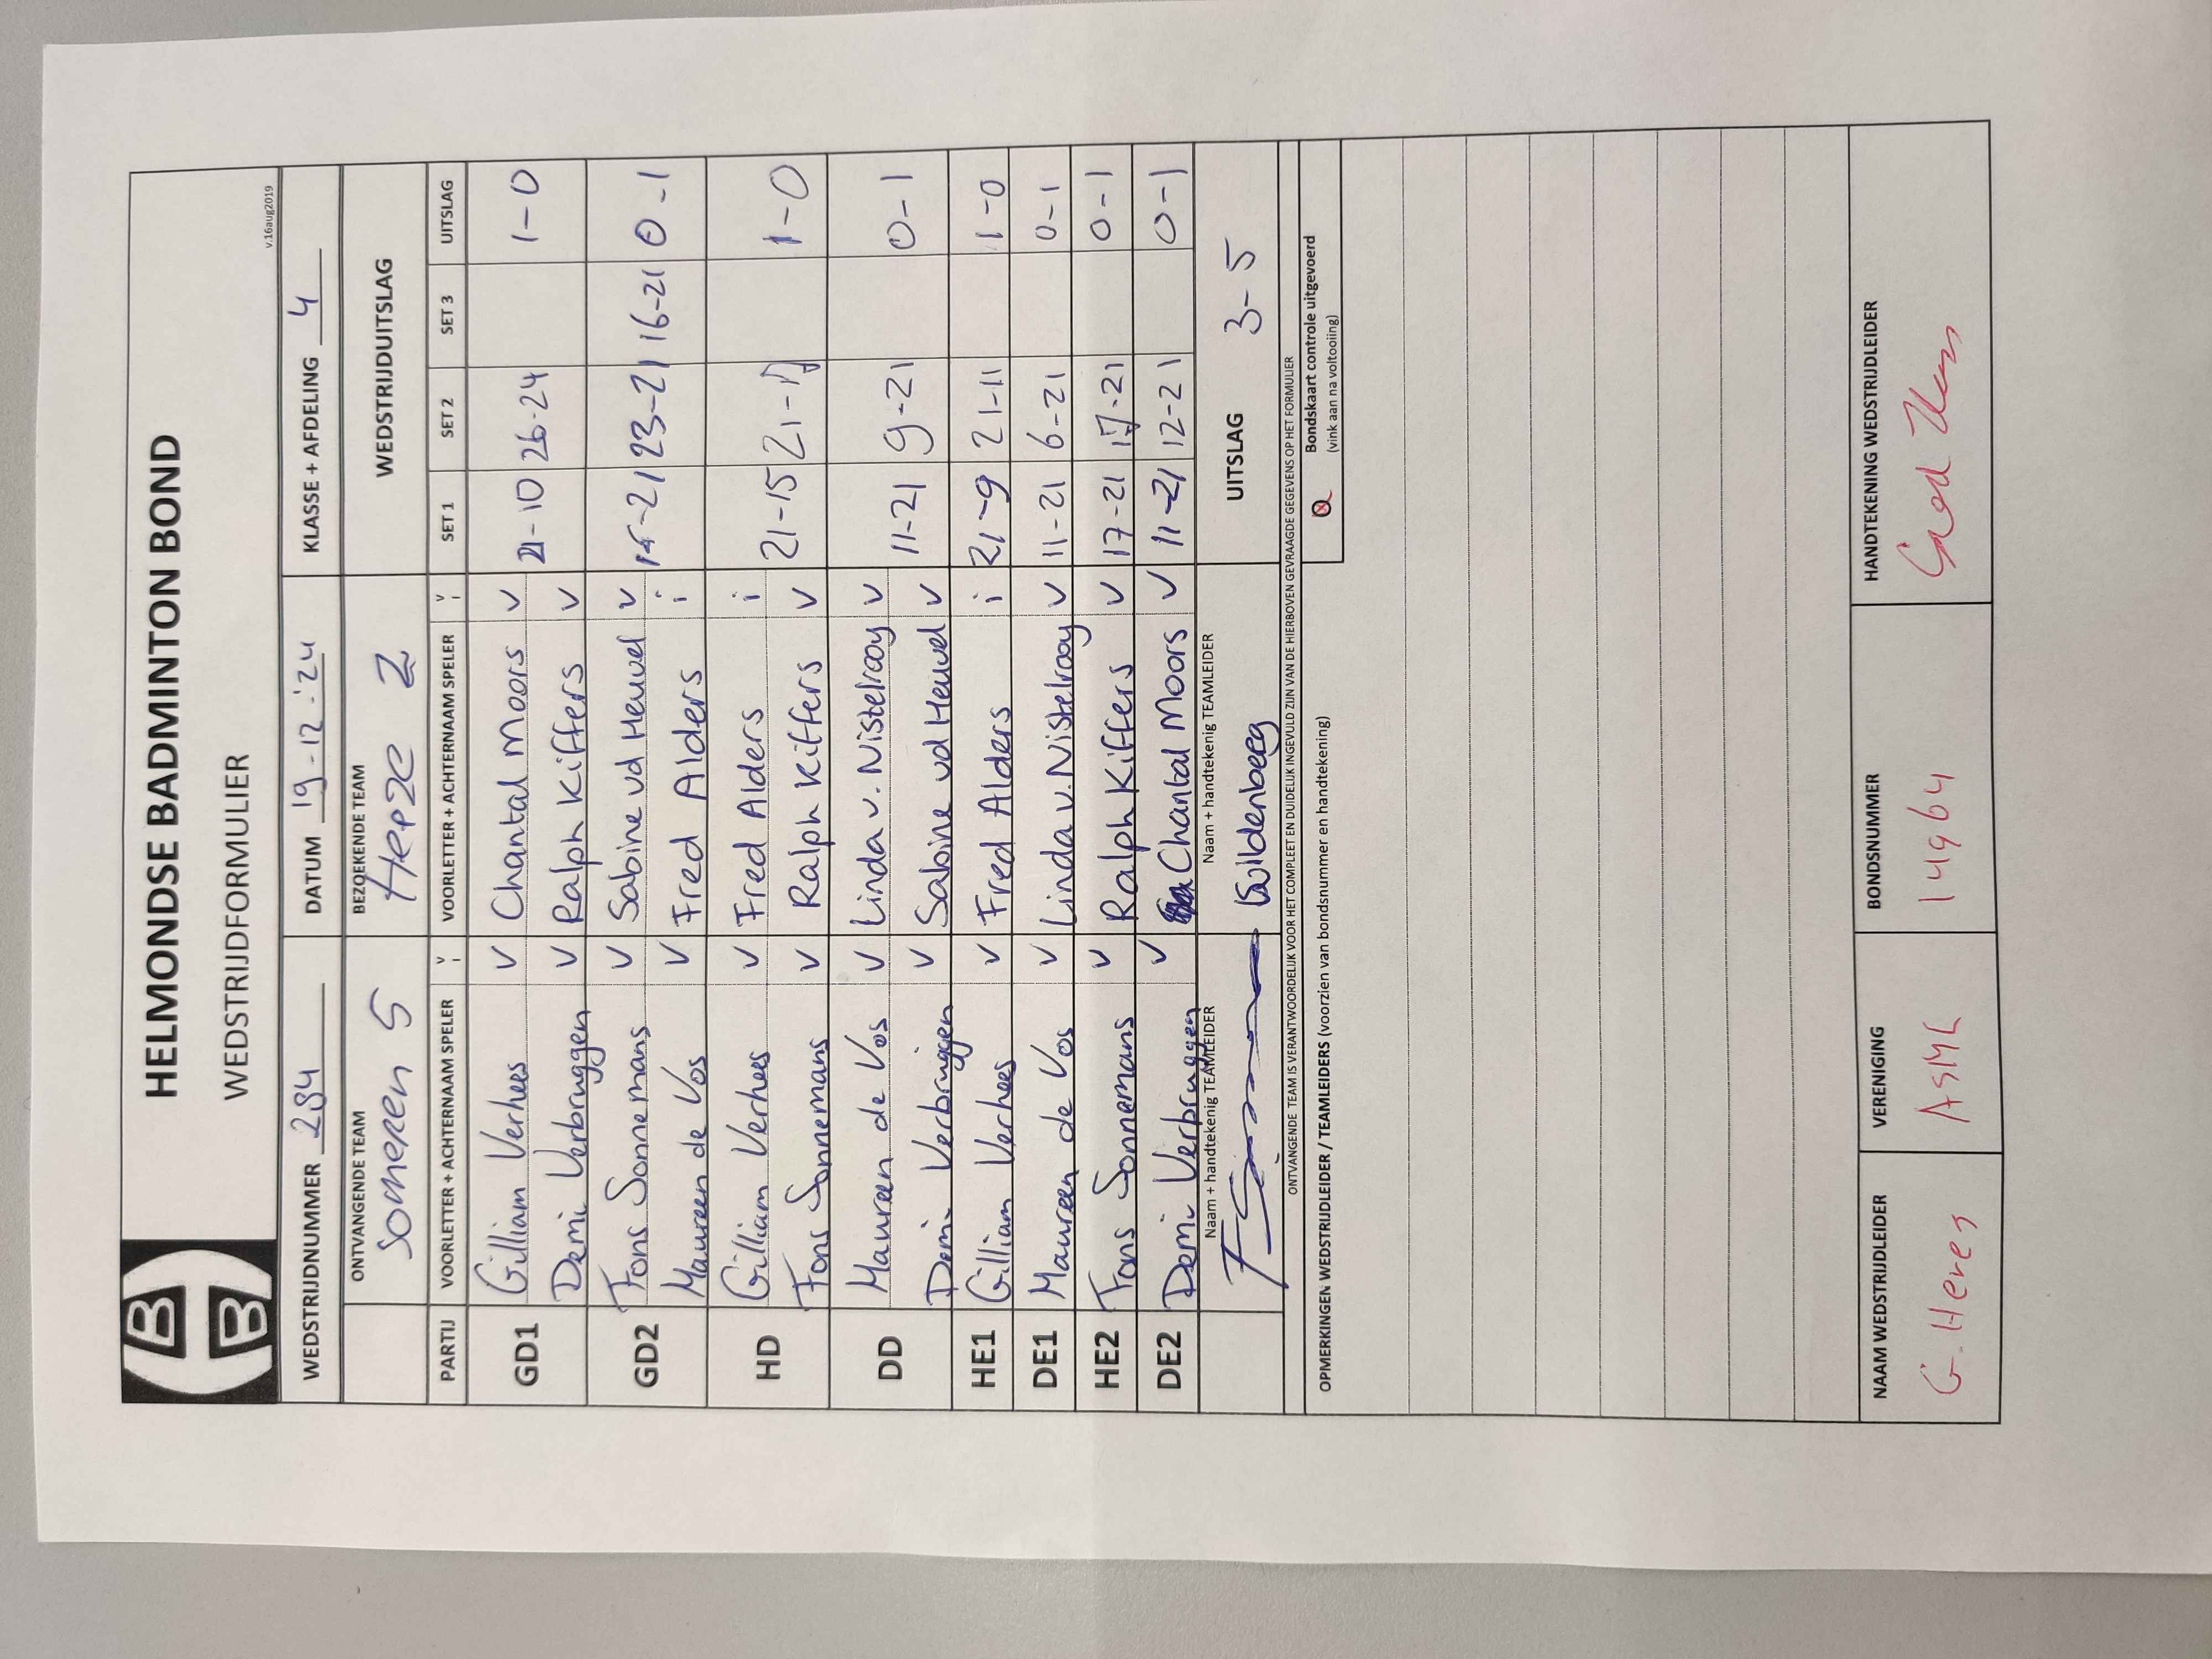 HELMONDSE BADMINTON BOND
WEDSTRIJDFORMULIER
v.16aug2019
WEDSTRIJDNUMMER 284 DATUM 19-12-'24 KLASSE + AFDELING 4
ONTVANGENDE TEAM BEZOEKENDE TEAM WEDSTRIJDUITSLAG
SOMEREN 5 Heeze 2
PARTIJ VOORLETTER + ACHTERNAAM SPELER v i VOORLETTER + ACHTERNAAM SPELER v i SET 1 SET 2 SET 3 UITSLAG
GD1 Gilliam Verhees v Chantal Moors v 21-10 26-24 1-0
Demi Verbruggen v Ralph Kiffers v
GD2 Fons Sonnemans v Sabine vd Heuvel v 15-21 23-21 16-21 0-1
Maureen de Vos v Fred Alders i
HD Gilliam Verhees v Fred Alders i 21-15 21-17 1-0
Fons Sonnemans v Ralph Kiffers v
DD Maureen de Vos v Linda v. Nistelrooy v 11-21 9-21 0-1
Demi Verbruggen v Sabine vd Heuvel v
HE1 Gilliam Verhees v Fred Alders i 21-9 21-11 1-0
DE1 Maureen de Vos v Linda v. Nistelrooy v 11-21 6-21 0-1
HE2 Fons Sonnemans v Ralph Kiffers v 17-21 17-21 0-1
DE2 Demi Verbruggen v Chantal Moors v 11-21 12-21 0-1
Naam + handtekenig TEAMLEIDER Naam + handtekenig TEAMLEIDER UITSLAG 3-5
Wildenberg
ONTVANGENDE TEAM IS VERANTWOORDELIJK VOOR HET COMPLEET EN DUIDELIJK INGEVULD ZIJN VAN DE HIERBOVEN GEVRAAGDE GEGEVENS OP HET FORMULIER
OPMERKINGEN WEDSTRIJDLEIDER / TEAMLEIDERS (voorzien van bondsnummer en handtekening)
Bondskaart controle uitgevoerd
(vink aan na voltooiing)
NAAM WEDSTRIJDLEIDER VERENIGING BONDSNUMMER HANDTEKENING WEDSTRIJDLEIDER
G. Heres 14964